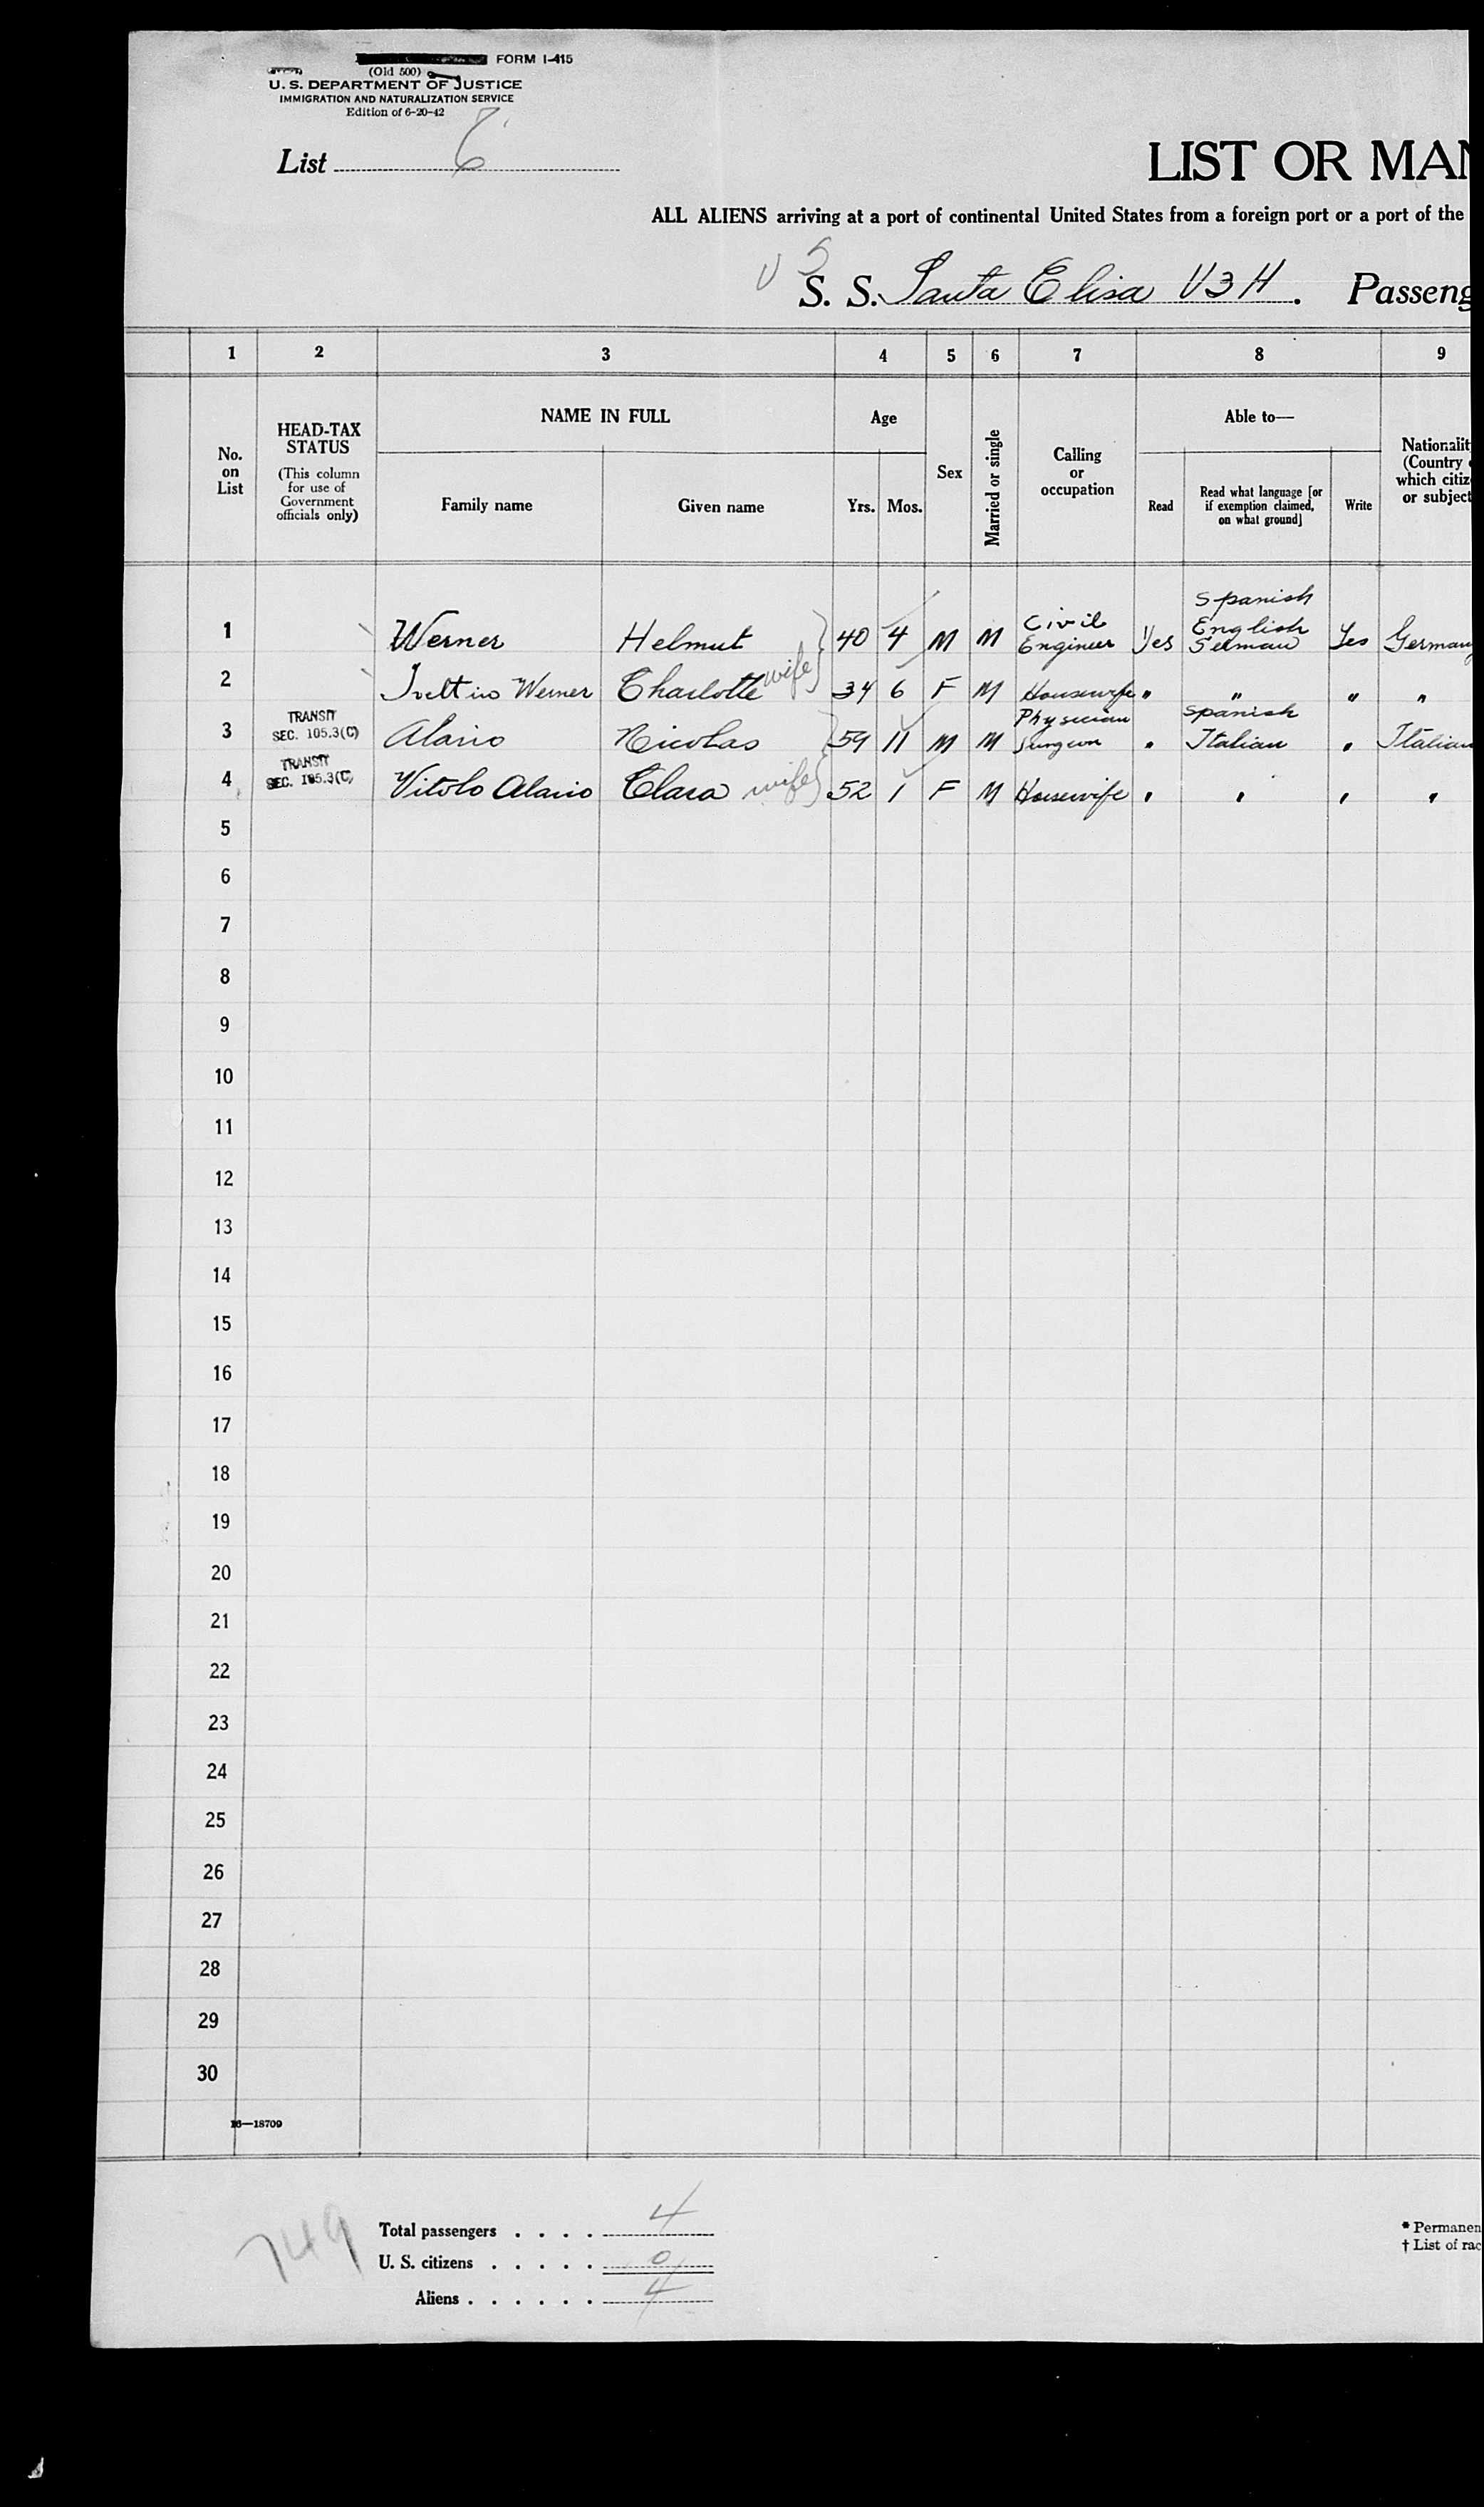 FORM I-415
(Old 500)
U. S. DEPARTMENT OF JUSTICE
IMMIGRATION AND NATURALIZATION SERVICE
Edition of 6-20-42
List 6
LIST OR MAN
ALL ALIENS arriving at a port of continental United States from a foreign port or a port of the
S. S. Santa Elisa V3H. Passeng
1 2 3 4 5 6 7 8 9
No. on List
HEAD-TAX STATUS
(This column for use of Government officials only)
NAME IN FULL
Family name Given name
Age
Yrs. Mos.
Sex
Married or single
Calling or occupation
Able to—
Read
Read what language [or if exemption claimed, on what ground]
Write
Nationalit
(Country
which citiz
or subject
1 Werner Helmut 40 4 M M Civil Engineer Yes Spanish English German Yes German
2 Werner Charlotte wife 34 6 F M Housewife " " " "
3 TRANSIT SEC. 105.3(C) Alario Nicolas 59 11 M M Physician Surgeon " Spanish Italian " Italian
4 TRANSIT SEC. 105.3(C) Vitolo Alario Clara wife 52 1 F M Housewife " " " "
5
6
7
8
9
10
11
12
13
14
15
16
17
18
19
20
21
22
23
24
25
26
27
28
29
30
16—18709
749
Total passengers . . . . 4
U. S. citizens . . . . . 0
Aliens . . . . . . 4
* Permanen
† List of rac